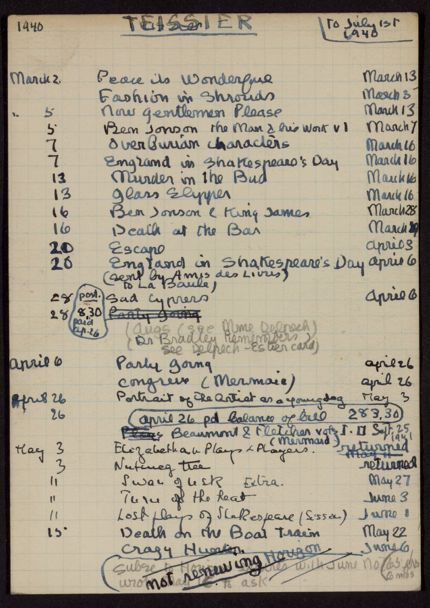 1940 TEISSIER To July 1st 1940
March 2 Peace its Wonderful March 13
Fashion in Shrouds March 5
" 5 Now Gentlemen Please March 13
5 Ben Jonson the Man & his Work v 1 March 7
7 Overburian characters March 16
7 England in Shakespeare's Day March 16
13 Murder in the Bud March 16
13 Glass Slipper March 16
16 Ben Jonson & King James March 28
16 Death at the Bar March
20 Escape April 3
20 England in Shakespeare's Day April 6
(sent by Amis des Livres)
to La Baule)
28 post. Sad Cypress April 6
28 8,30 Party Going
paid Ap. 26
(see Mme Delpech)
Dr Bradley Remembers)
see Delpech - Estier card)
April 6 Party Going April 26
congreve (Mermaid) April 26
April 26 Portrait of the Artist as a young dog May 3
26 (april 26 pd balance of bill 283,30)
Plays Beaumont & Fletcher vols I. II Sept. 25 1941
(Mermaid)
May 3 Elizabethan Plays & Players. returned
3 Nutmeg tree returned
" Swan of Usk Extra. May 27
" Turn of the June 3
" Lost plays of Shakespeare (Sisson) June
15 Death on the Boat Train May 22
Crazy June 6
with June No
not renewing Horizon 6 mos
ask